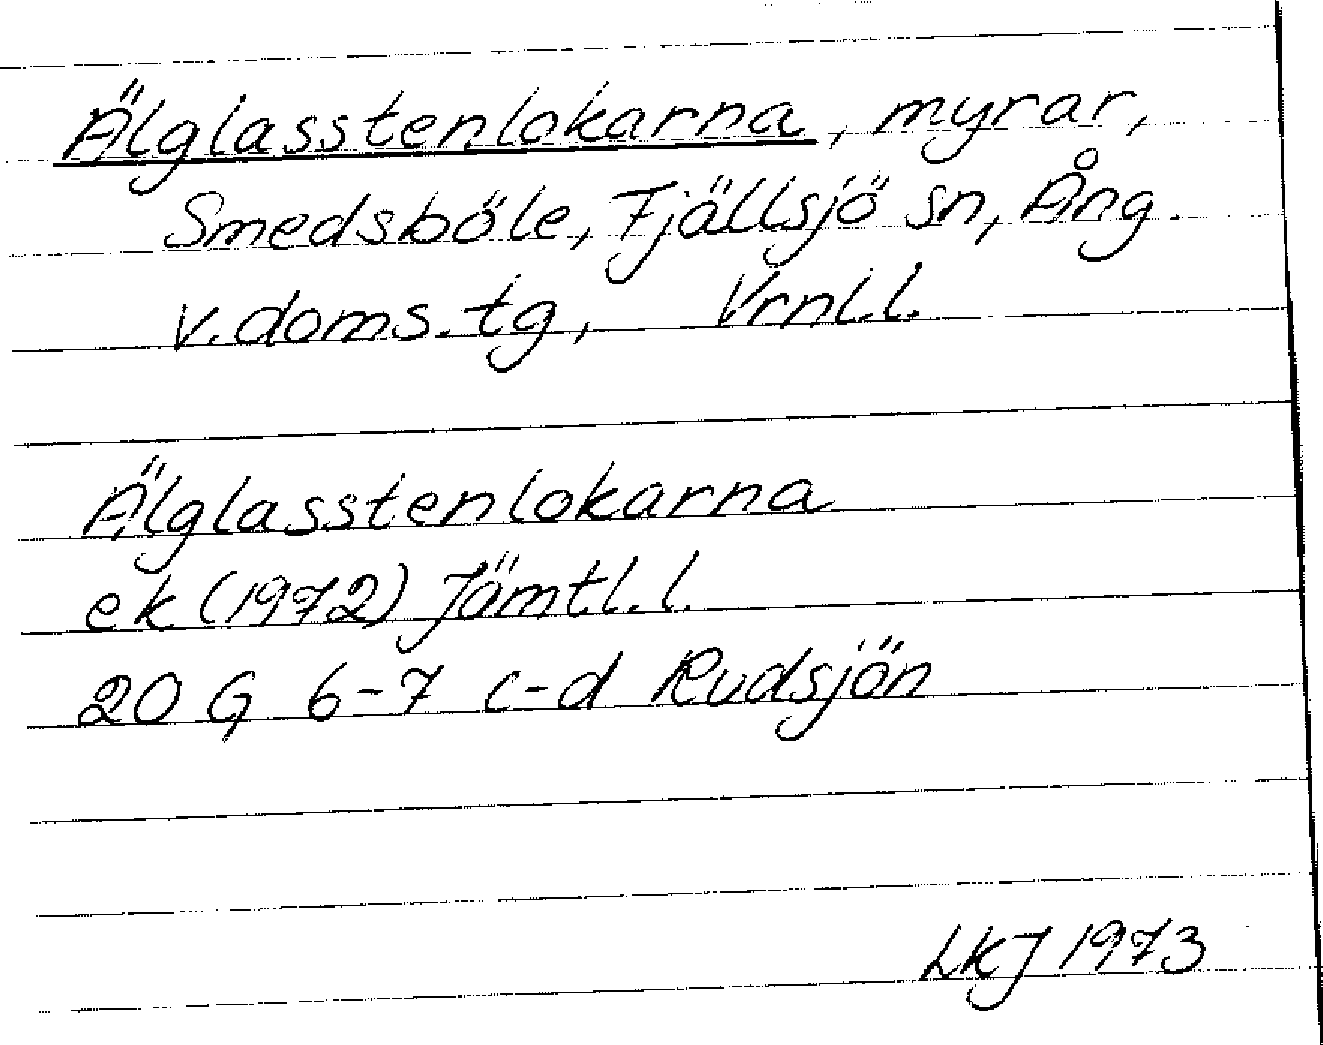 Älglasstenlokarna, myrar,
Smedsböle, Fjällsjö sn, Ång.
v. doms. tg, Vrnl.l.
Älglasstenlokarna
ek (1972) Jämtl. l.
20 G 6-7 c-d Rudsjön
LKJ 1973